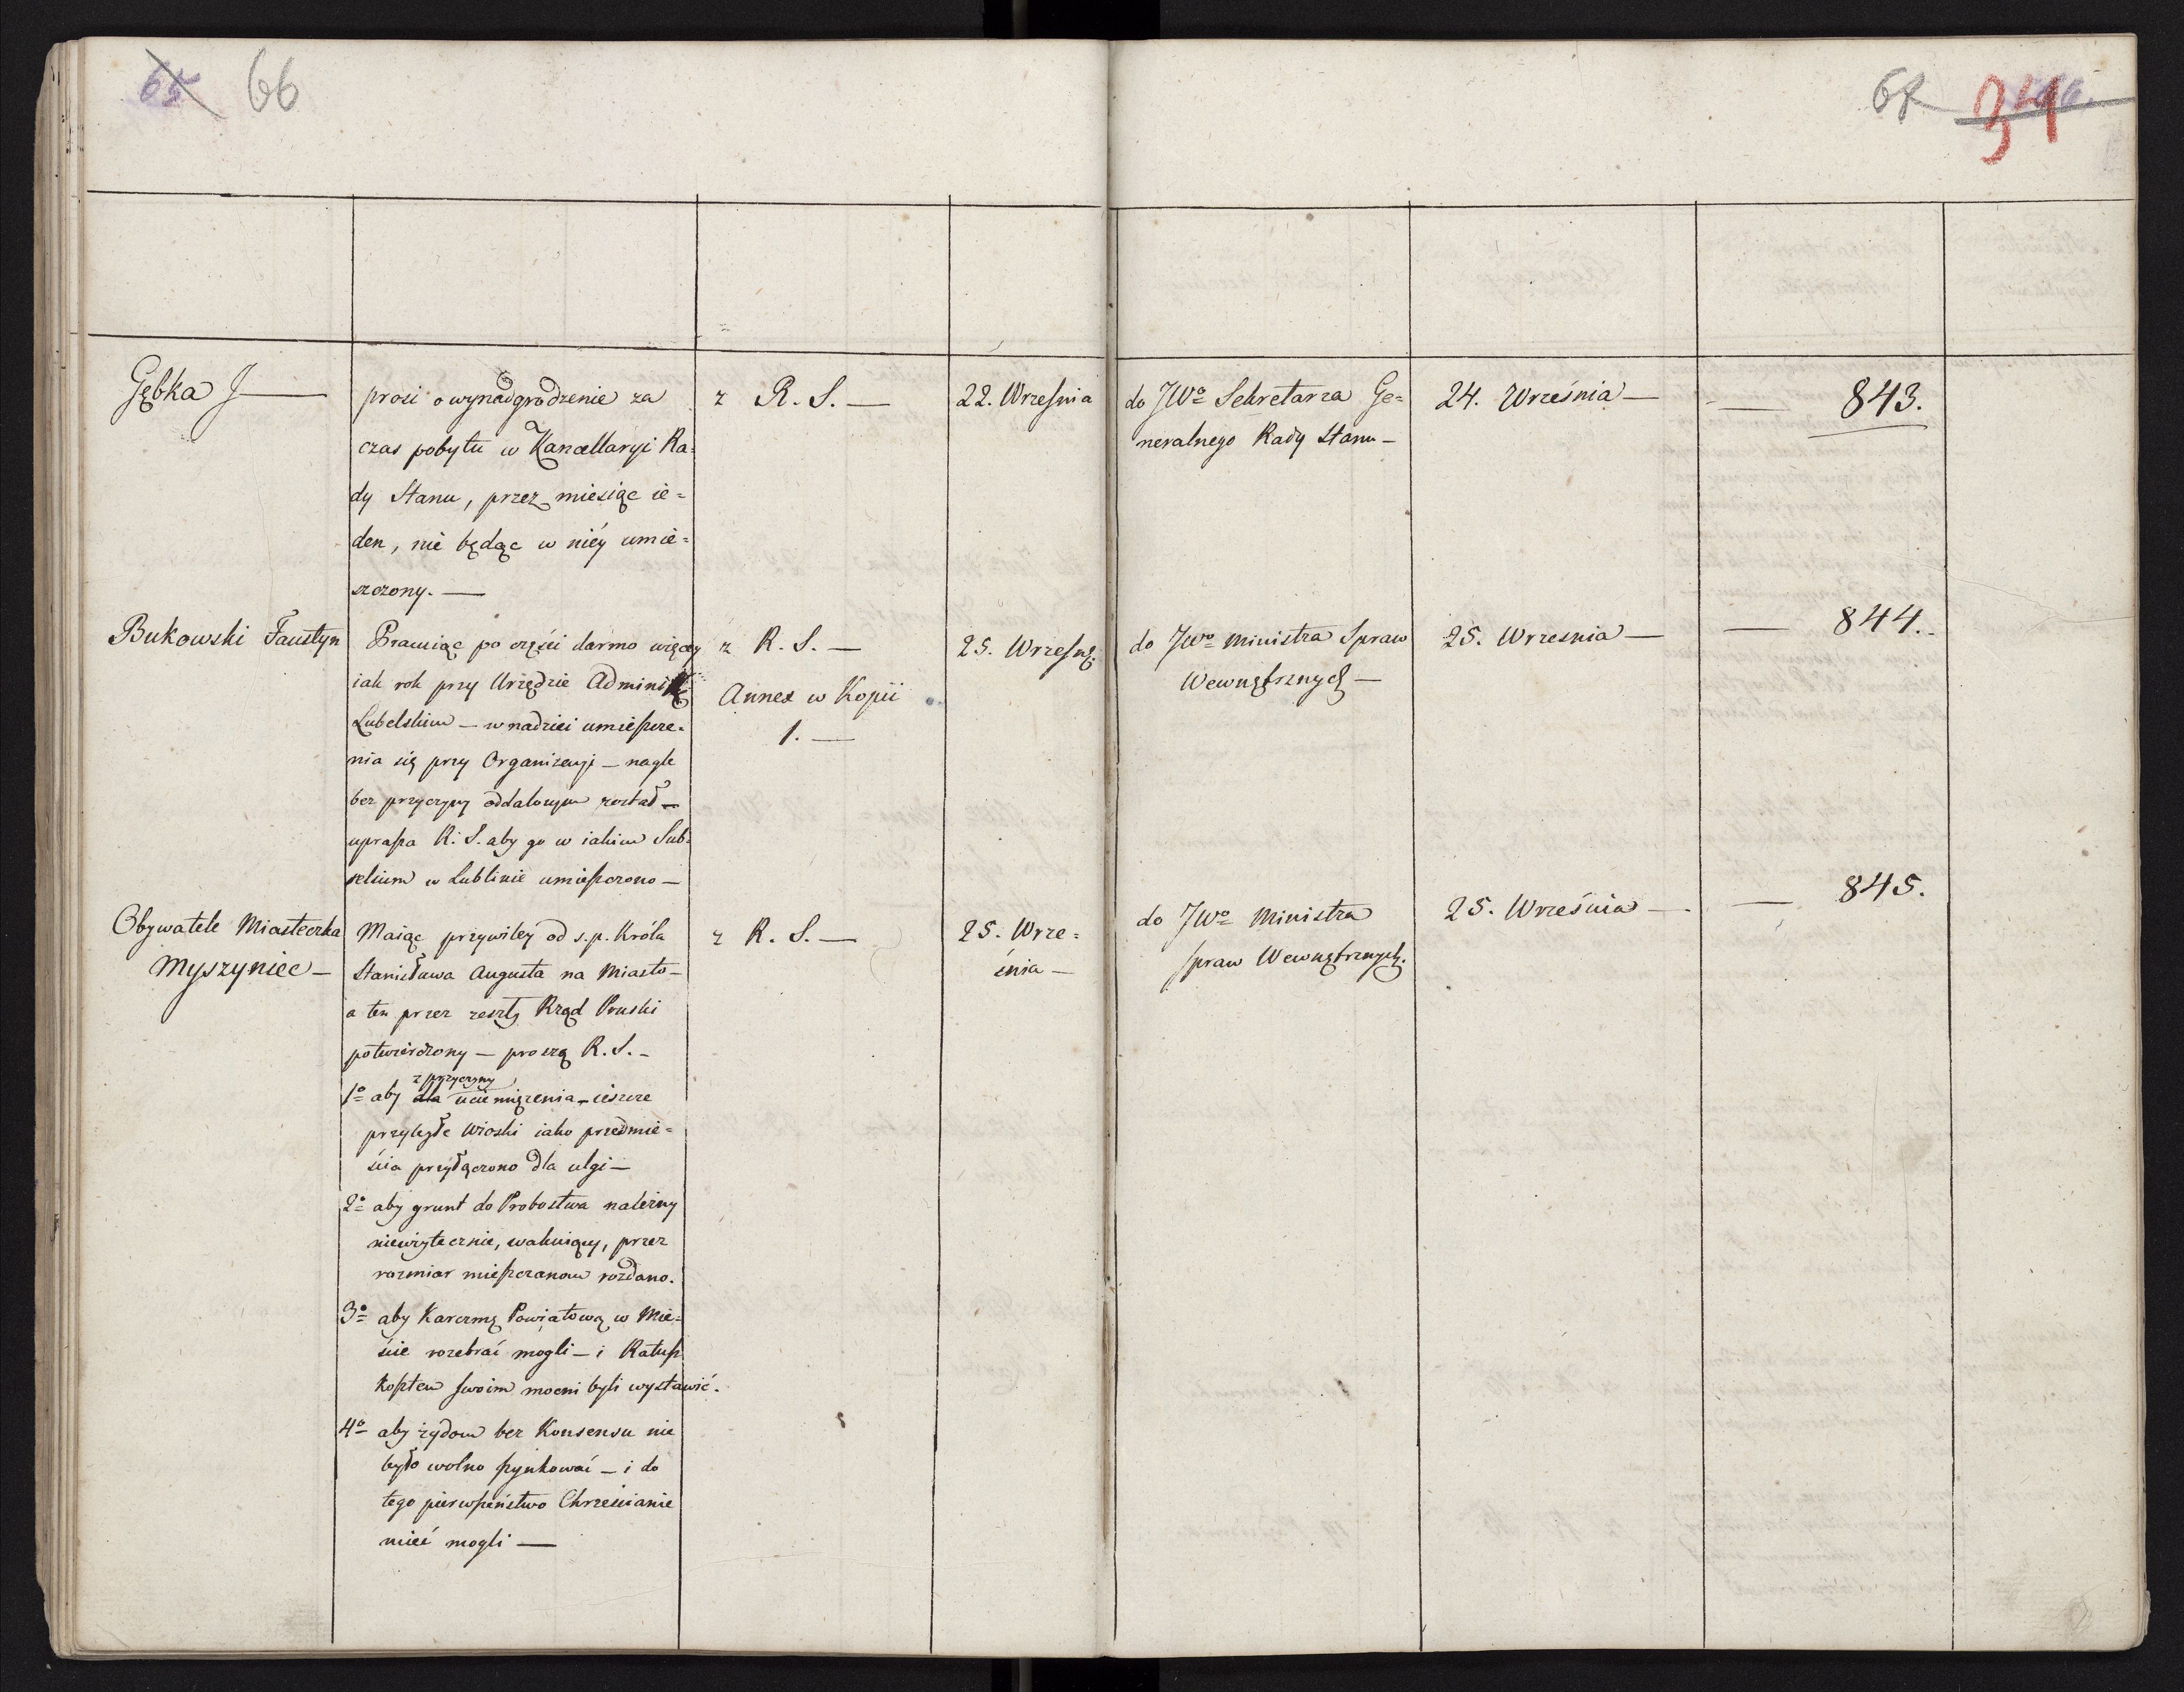 65 66
67 34
Gębka J —
prosi o wynadgrodzenie za
czas pobytu w Kancellaryi Ra=
dy Stanu, przez miesiąc ie=
den, nie będąc w niéy umie=
szczony. —
z R. S. —
22. Września
do JWo Sekretarza Ge=
neralnego Rady Stanu —
24. Września —
— 843.
Bukowski Faustyn
Pracuiąc po części darmo więcey
iak rok przy Urzędzie
Lubelskim — w nadziei umieszcze=
nia się przy Organizacyi — nagle
bez przyczyny oddalonym został —
uprasza R. S. aby go w iakim Sub=
selium w Lublinie umieszczono —
z R. S. —
Annex w Kopii
1. —
25. Wrześn.
do JWo Ministra Spraw
Wewnętrznych —
25. Wrzesnia —
— 844.
Obywatele Miasteczka
Myszyniec —
Maiąc przywiley od s. p. Króla
Stanisława Augusta na Miasto —
a ten przez zeszły Rząd Pruski
potwierdzony — proszą R. S. —
z przyczyny
1o aby dla uciemiężenia — ieszcze
przyległe Wioski iako przedmie=
ścia przyłączono dla ulgi —
2o aby grunt do Probostwa należny
nieużytecznie, wakuiący, przez
rozmiar mieszczanom rozdano.
3o aby Karczmę Powiatową w Mie=
ście rozebrać mogli — i Ratusz
kosztem swoim mocni byli wystawić.
4o aby żydom bez Konsensu nie
było wolno szynkować — i do
tego pierwszeństwo Chrześcianie
mieć mogli —
z R. S. —
25. Wrze=
śnia —
do JWo Ministra
Spraw Wewnętrznych.
25. Września —
— 845.